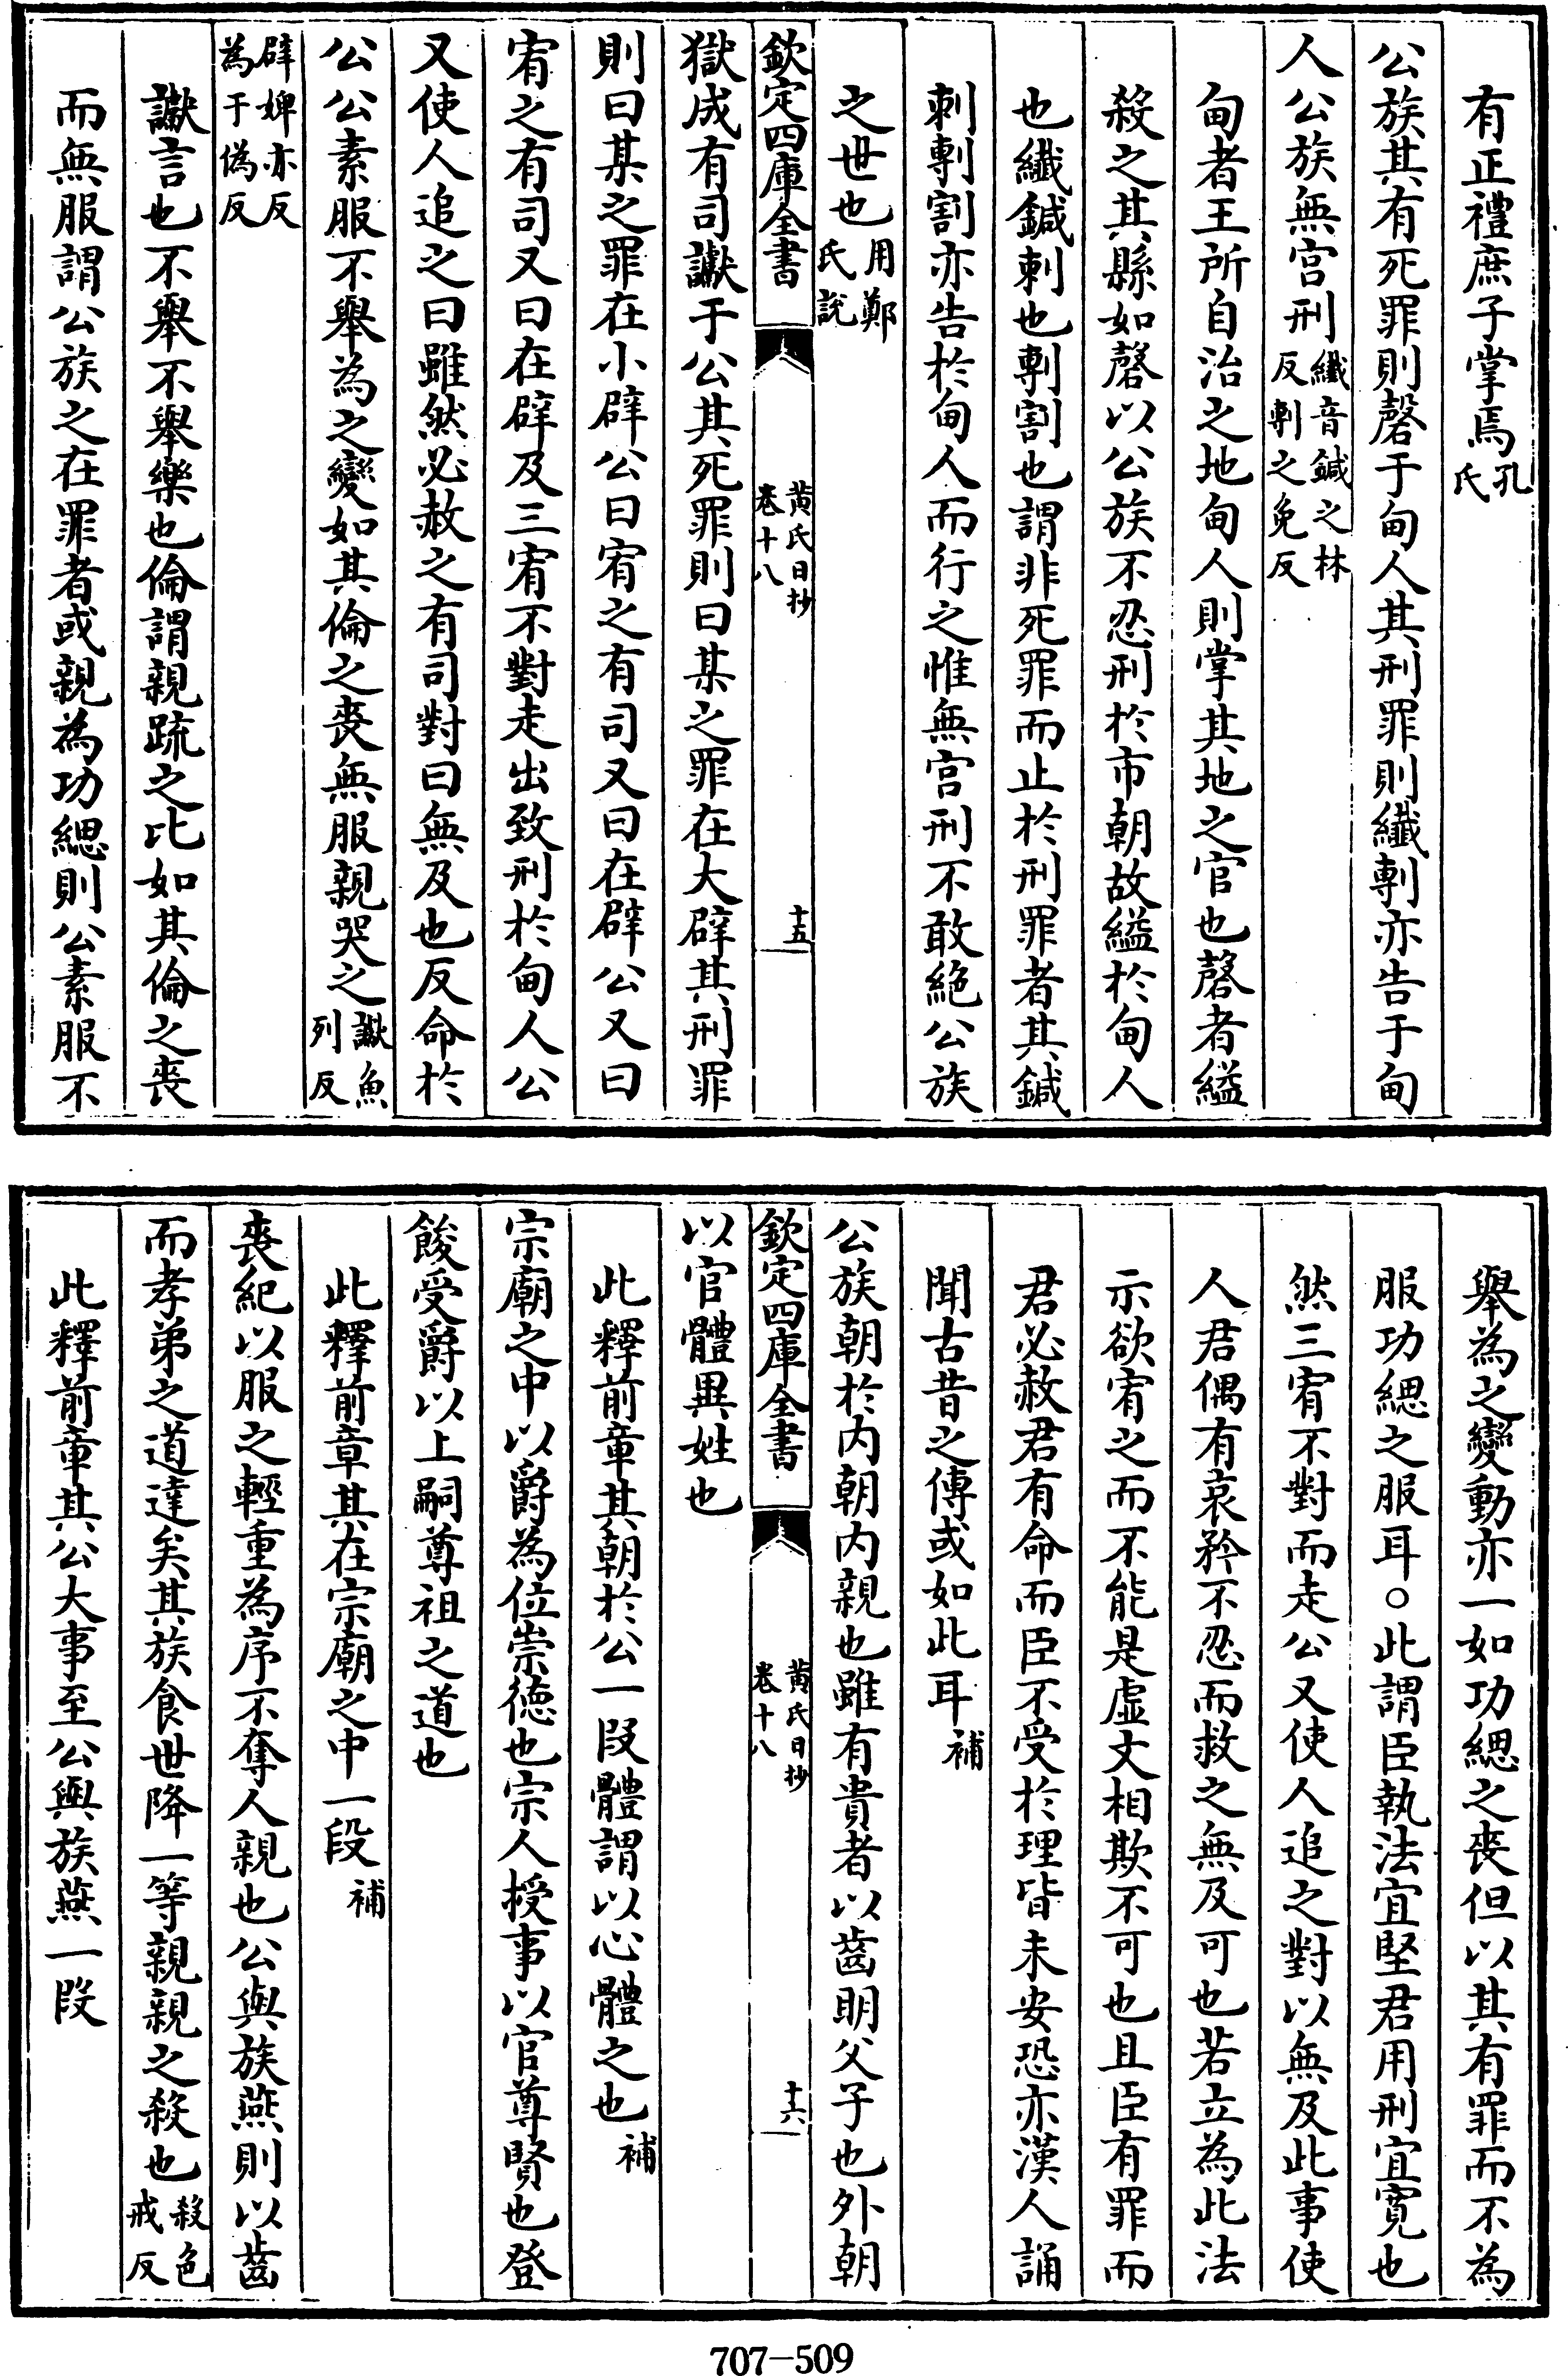 有正禮庶子掌焉孔氏
公族其有死罪則磬于甸人其刑罪則纖剸亦告于甸
人公族無宫刑纖音鍼之林反剸之免反
甸者王所自治之地甸人則掌其地之官也磬者縊
殺之其縣如磬以公族不忍刑於市朝故縊於甸人
也纖鍼刺也剸割也謂非死罪而止於刑罪者其鍼
刺剸割亦告於甸人而行之惟無宫刑不敢絶公族
之世也用鄭氏說
欽定四庫全書
黄氏日抄
卷十八
十五
獄成有司讞于公其死罪則曰某之罪在大辟其刑罪
則曰某之罪在小辟公曰宥之有司又曰在辟公又曰
宥之有司又曰在辟及三宥不對走出致刑於甸人公
又使人追之曰雖然必赦之有司對曰無及也反命於
公公素服不舉為之變如其倫之喪無服親哭之讞魚列反
辟婢亦反為于偽反
讞言也不舉不舉樂也倫謂親疏之比如其倫之喪
而無服謂公族之在罪者或親為功緦則公素服不
舉為之變動亦一如功緦之喪但以其有罪而不為
服功緦之服耳○此謂臣執法宜堅君用刑宜寛也
然三宥不對而走公又使人追之對以無及此事使
人君偶有哀矜不忍而救之無及可也若立為此法
示欲宥之而不能是虚文相欺不可也且臣有罪而
君必赦君有命而臣不受於理皆未安恐亦漢人誦
聞古昔之傳或如此耳補
公族朝於内朝内親也雖有貴者以齒明父子也外朝
欽定四庫全書
黄氏日抄
卷十八
十六
以官體異姓也
此釋前章其朝於公一段體謂以心體之也補
宗廟之中以爵為位崇德也宗人授事以官尊賢也登
餕受爵以上嗣尊祖之道也
此釋前章其在宗廟之中一段補
喪紀以服之輕重為序不奪人親也公與族燕則以齒
而孝弟之道達矣其族食世降一等親親之殺也殺色戒反
此釋前章其公大事至公與族燕一段
707—509